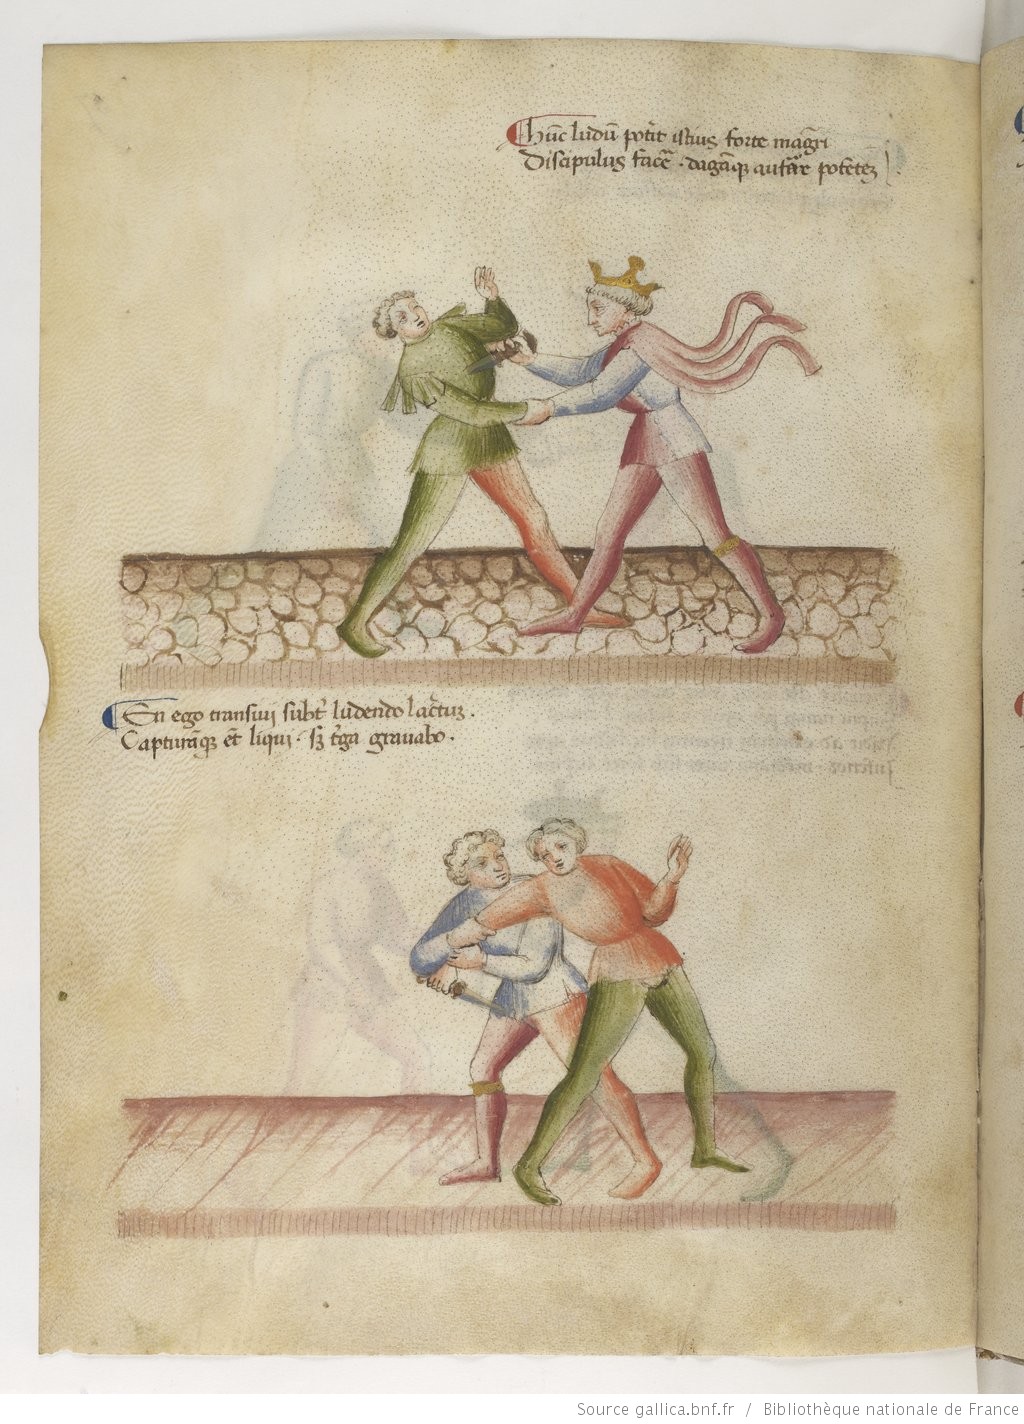 Hu͞c ludu͞ pot͛it istius forte mag͞ri
Discipulus fac͛e · daga͞q̨ auf͛re pote͞te͞ʒ
En ego transivi subt͛ ludendo lac͛tuʒ .
Captura͞q̨ et͞ liqui · sʒ t͛ga gravabo ·
Source gallica.bnf.fr / Bibliothèque nationale de France